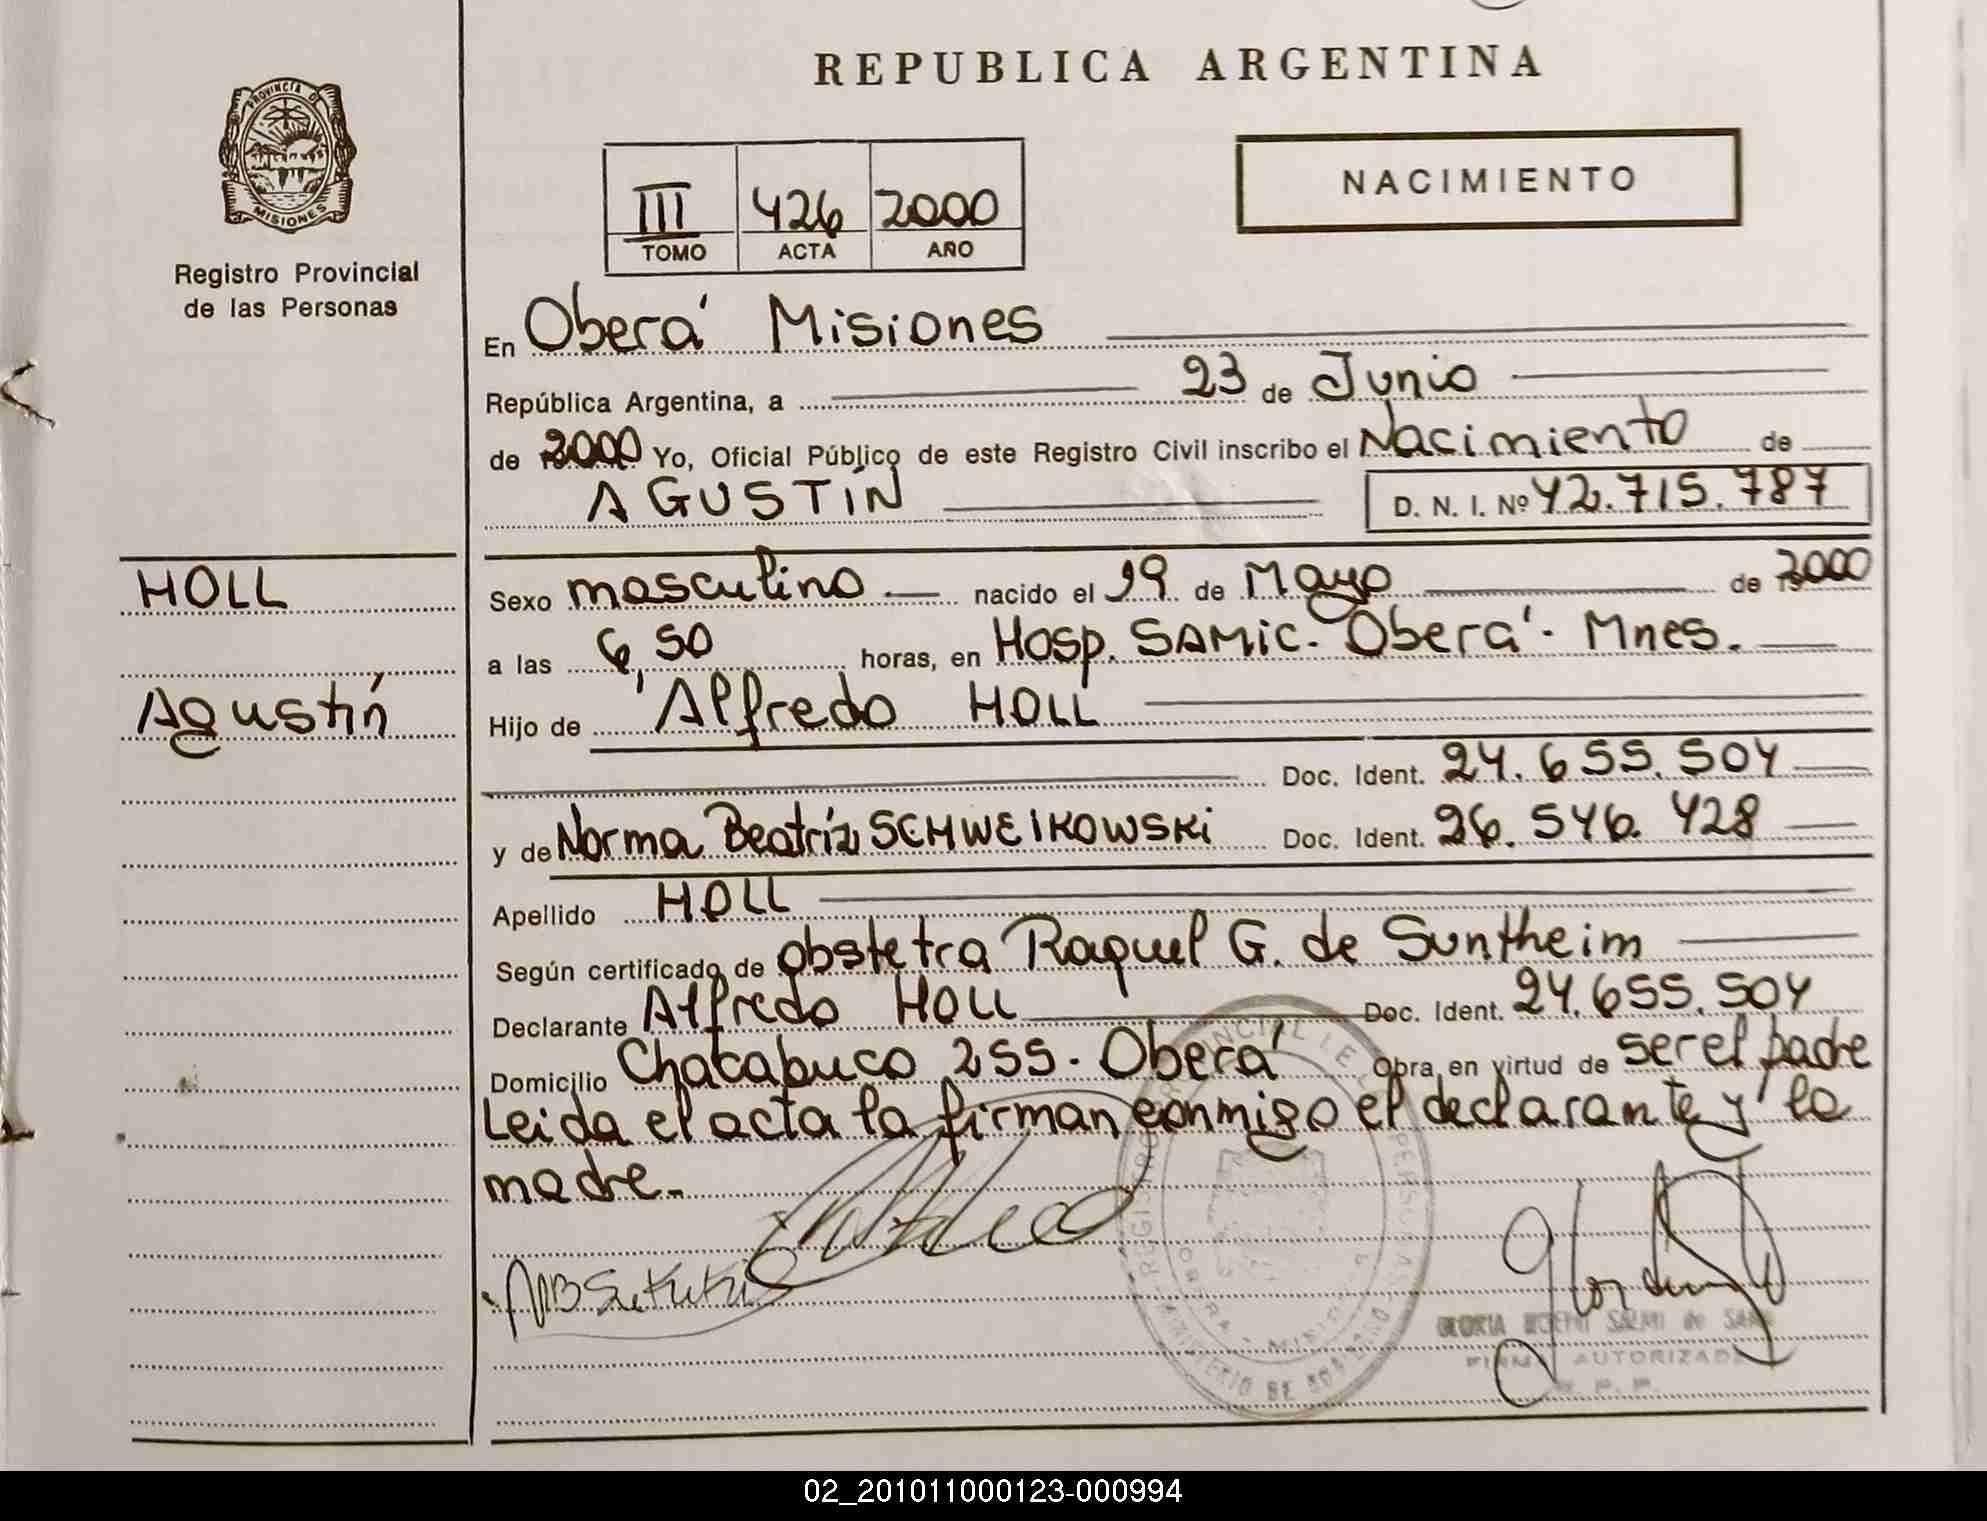 REPUBLICA ARGENTINA
PROVINCIA DE
MISIONES
Registro Provincial
de las Personas
NACIMIENTO
III 426 2000
TOMO ACTA AÑO
En Oberá Misiones
República Argentina, a 23 de Junio
de 2000 Yo, Oficial Público de este Registro Civil inscribo el Nacimiento de
AGUSTÍN D. N. I. Nº 42.715.787
HOLL
Sexo masculino nacido el 19 de Mayo de 2000
a las 6,50 horas, en Hosp. SAMIC. Oberá. Mnes.
Agustín
Hijo de Alfredo HOLL
Doc. Ident. 24.655.504
y de Norma Beatríz SCHWEIKOWSKI Doc. Ident. 26.546.428
Apellido HOLL
Según certificado de obstetra Raquel G. de Suntheim
Declarante Alfredo HOLL Doc. Ident. 24.655.504
Domicilio Chacabuco 255. Oberá Obra en virtud de ser el padre
Leida el acta la firman conmigo el declarante y la
madre.
GLORIA SALMI de
FIRMA AUTORIZADA
R. P. P.
02_201011000123-000994